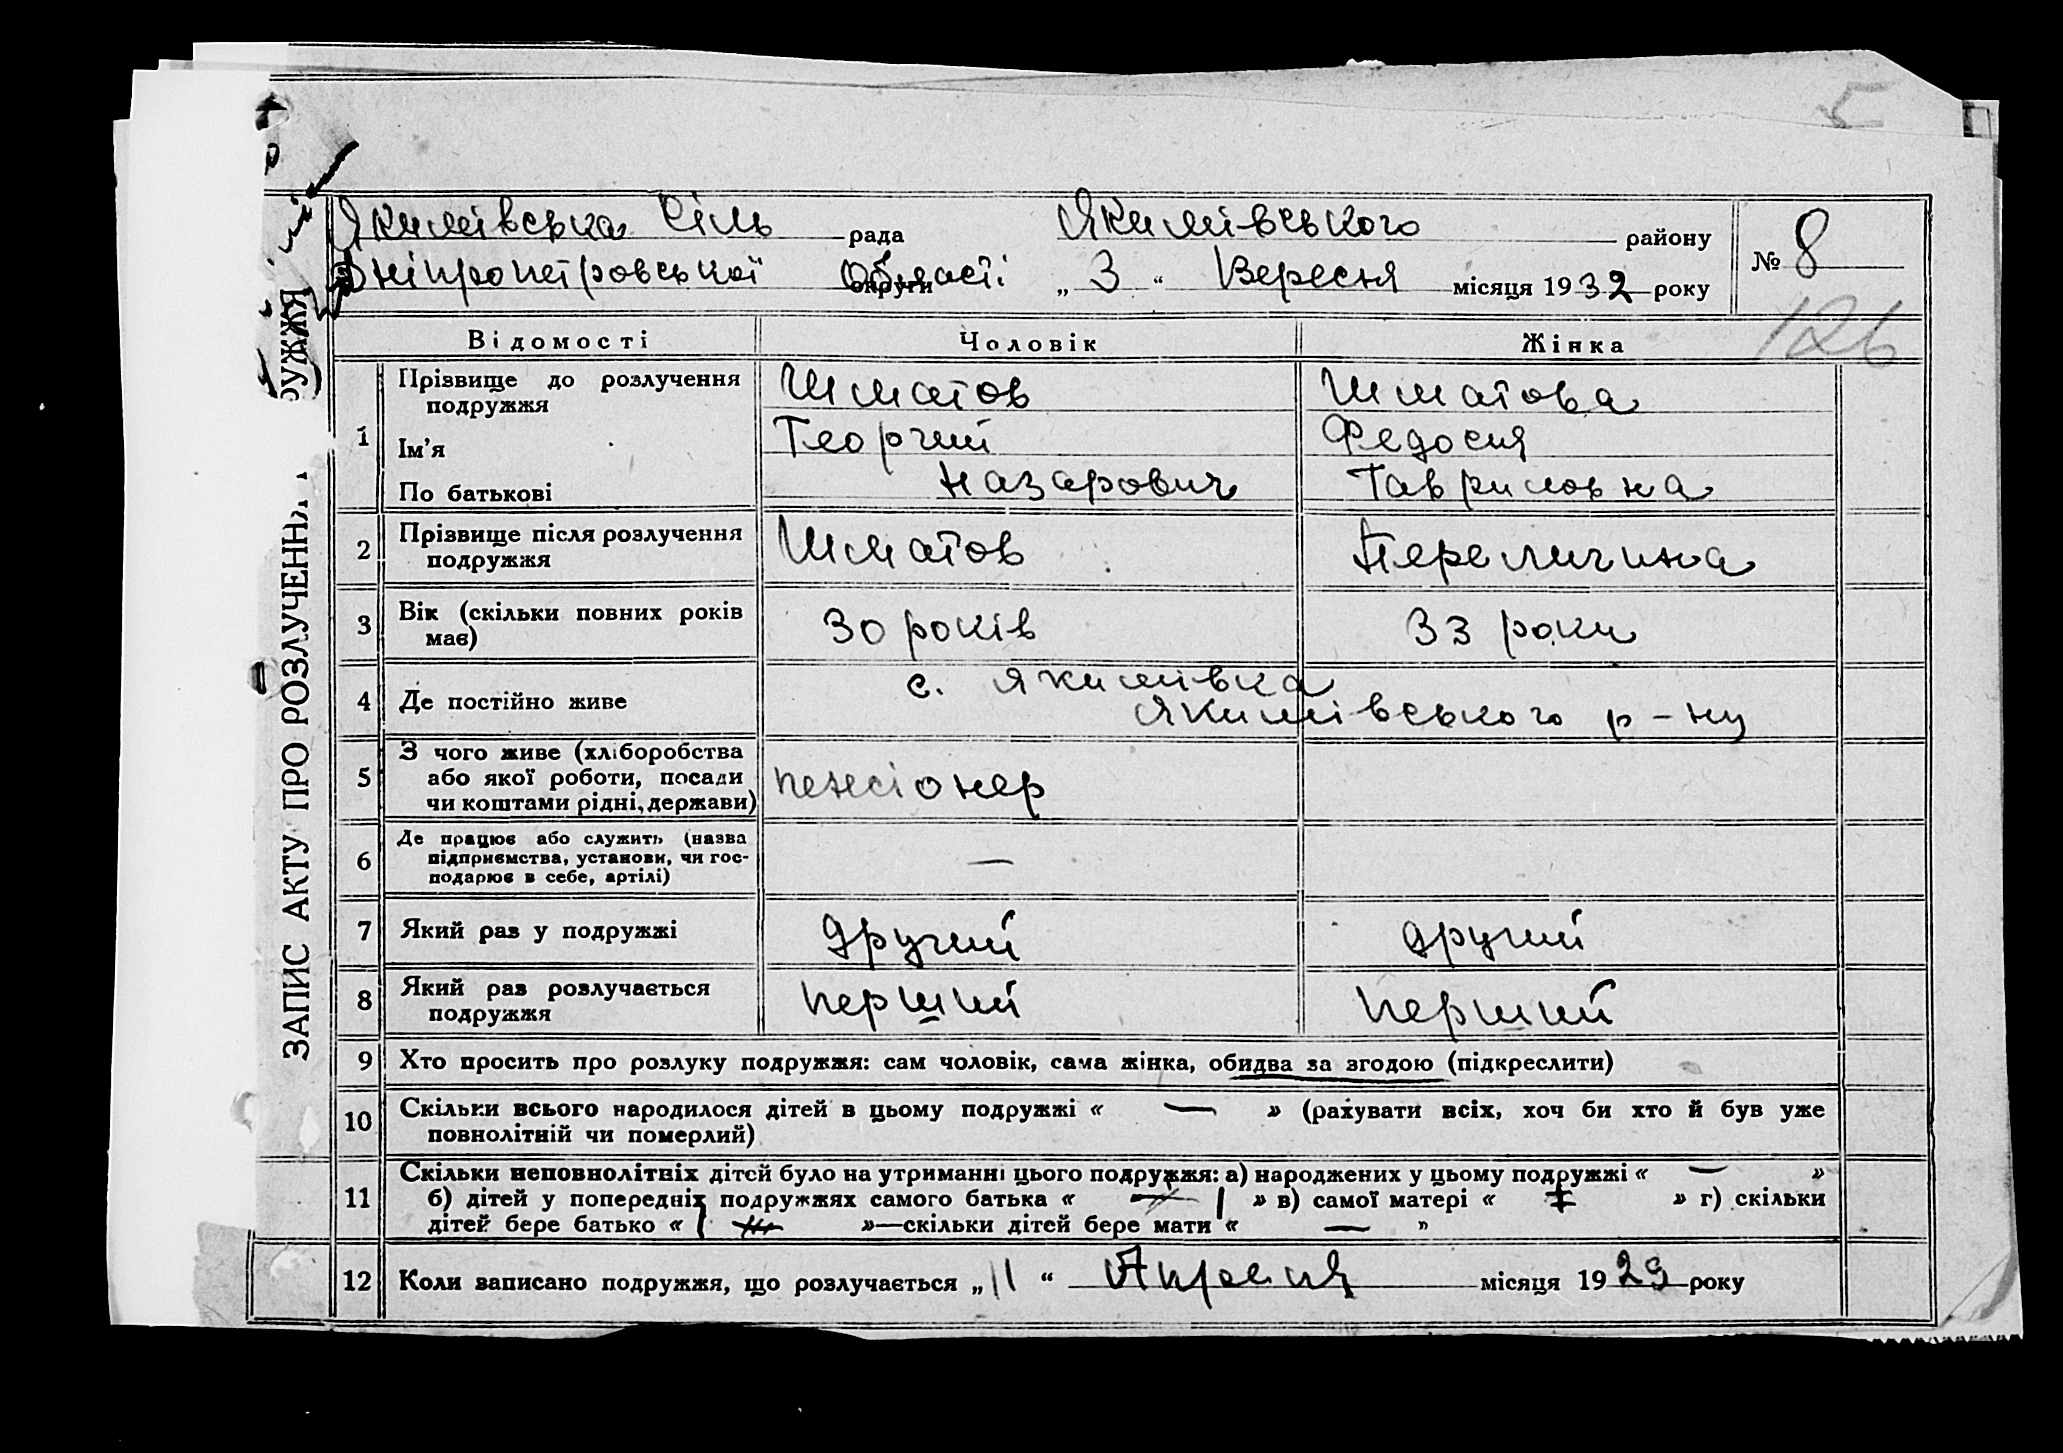 5
Якимівська сіль рада Якимівського району № 8
Дніпропетровської області округи „ 3 “ Вересня місяця 1932 року
126
ЗАПИС АКТУ ПРО РОЗЛУЧЕННЯ
Відомості Чоловік Жінка
1 Прізвище до розлучення подружжя Шматов Шматова
Ім'я Георгий Федосия
По батькові Назарович Гавриловна
2 Прізвище після розлучення подружжя Шматов
3 Вік (скільки повних років має) 30 років 33 роки
4 Де постійно живе с. Якимівка
Якимівського р-ну
5 З чого живе (хліборобства
або якої роботи, посади пенсіонер
чи коштами рідні, держави)
6 Де працює або служить (назва
підприємства, установи, чи гос- —
подарює в себе, артілі)
7 Який раз у подружжі другий другий
8 Який раз розлучається подружжя перший перший
9 Хто просить про розлуку подружжя: сам чоловік, сама жінка, обидва за згодою (підкреслити)
10 Скільки всього народилося дітей в цьому подружжі « — » (рахувати всіх, хоч би хто й був уже
повнолітній чи померлий)
11 Скільки неповнолітніх дітей було на утриманні цього подружжя: а) народжених у цьому подружжі « — »
б) дітей у попередніх подружжях самого батька « 1 » в) самої матері « » г) скільки
дітей бере батько « 1 »—скільки дітей бере мати « — »
12 Коли записано подружжя, що розлучається „ 11 “ Апреля місяця 1929 року